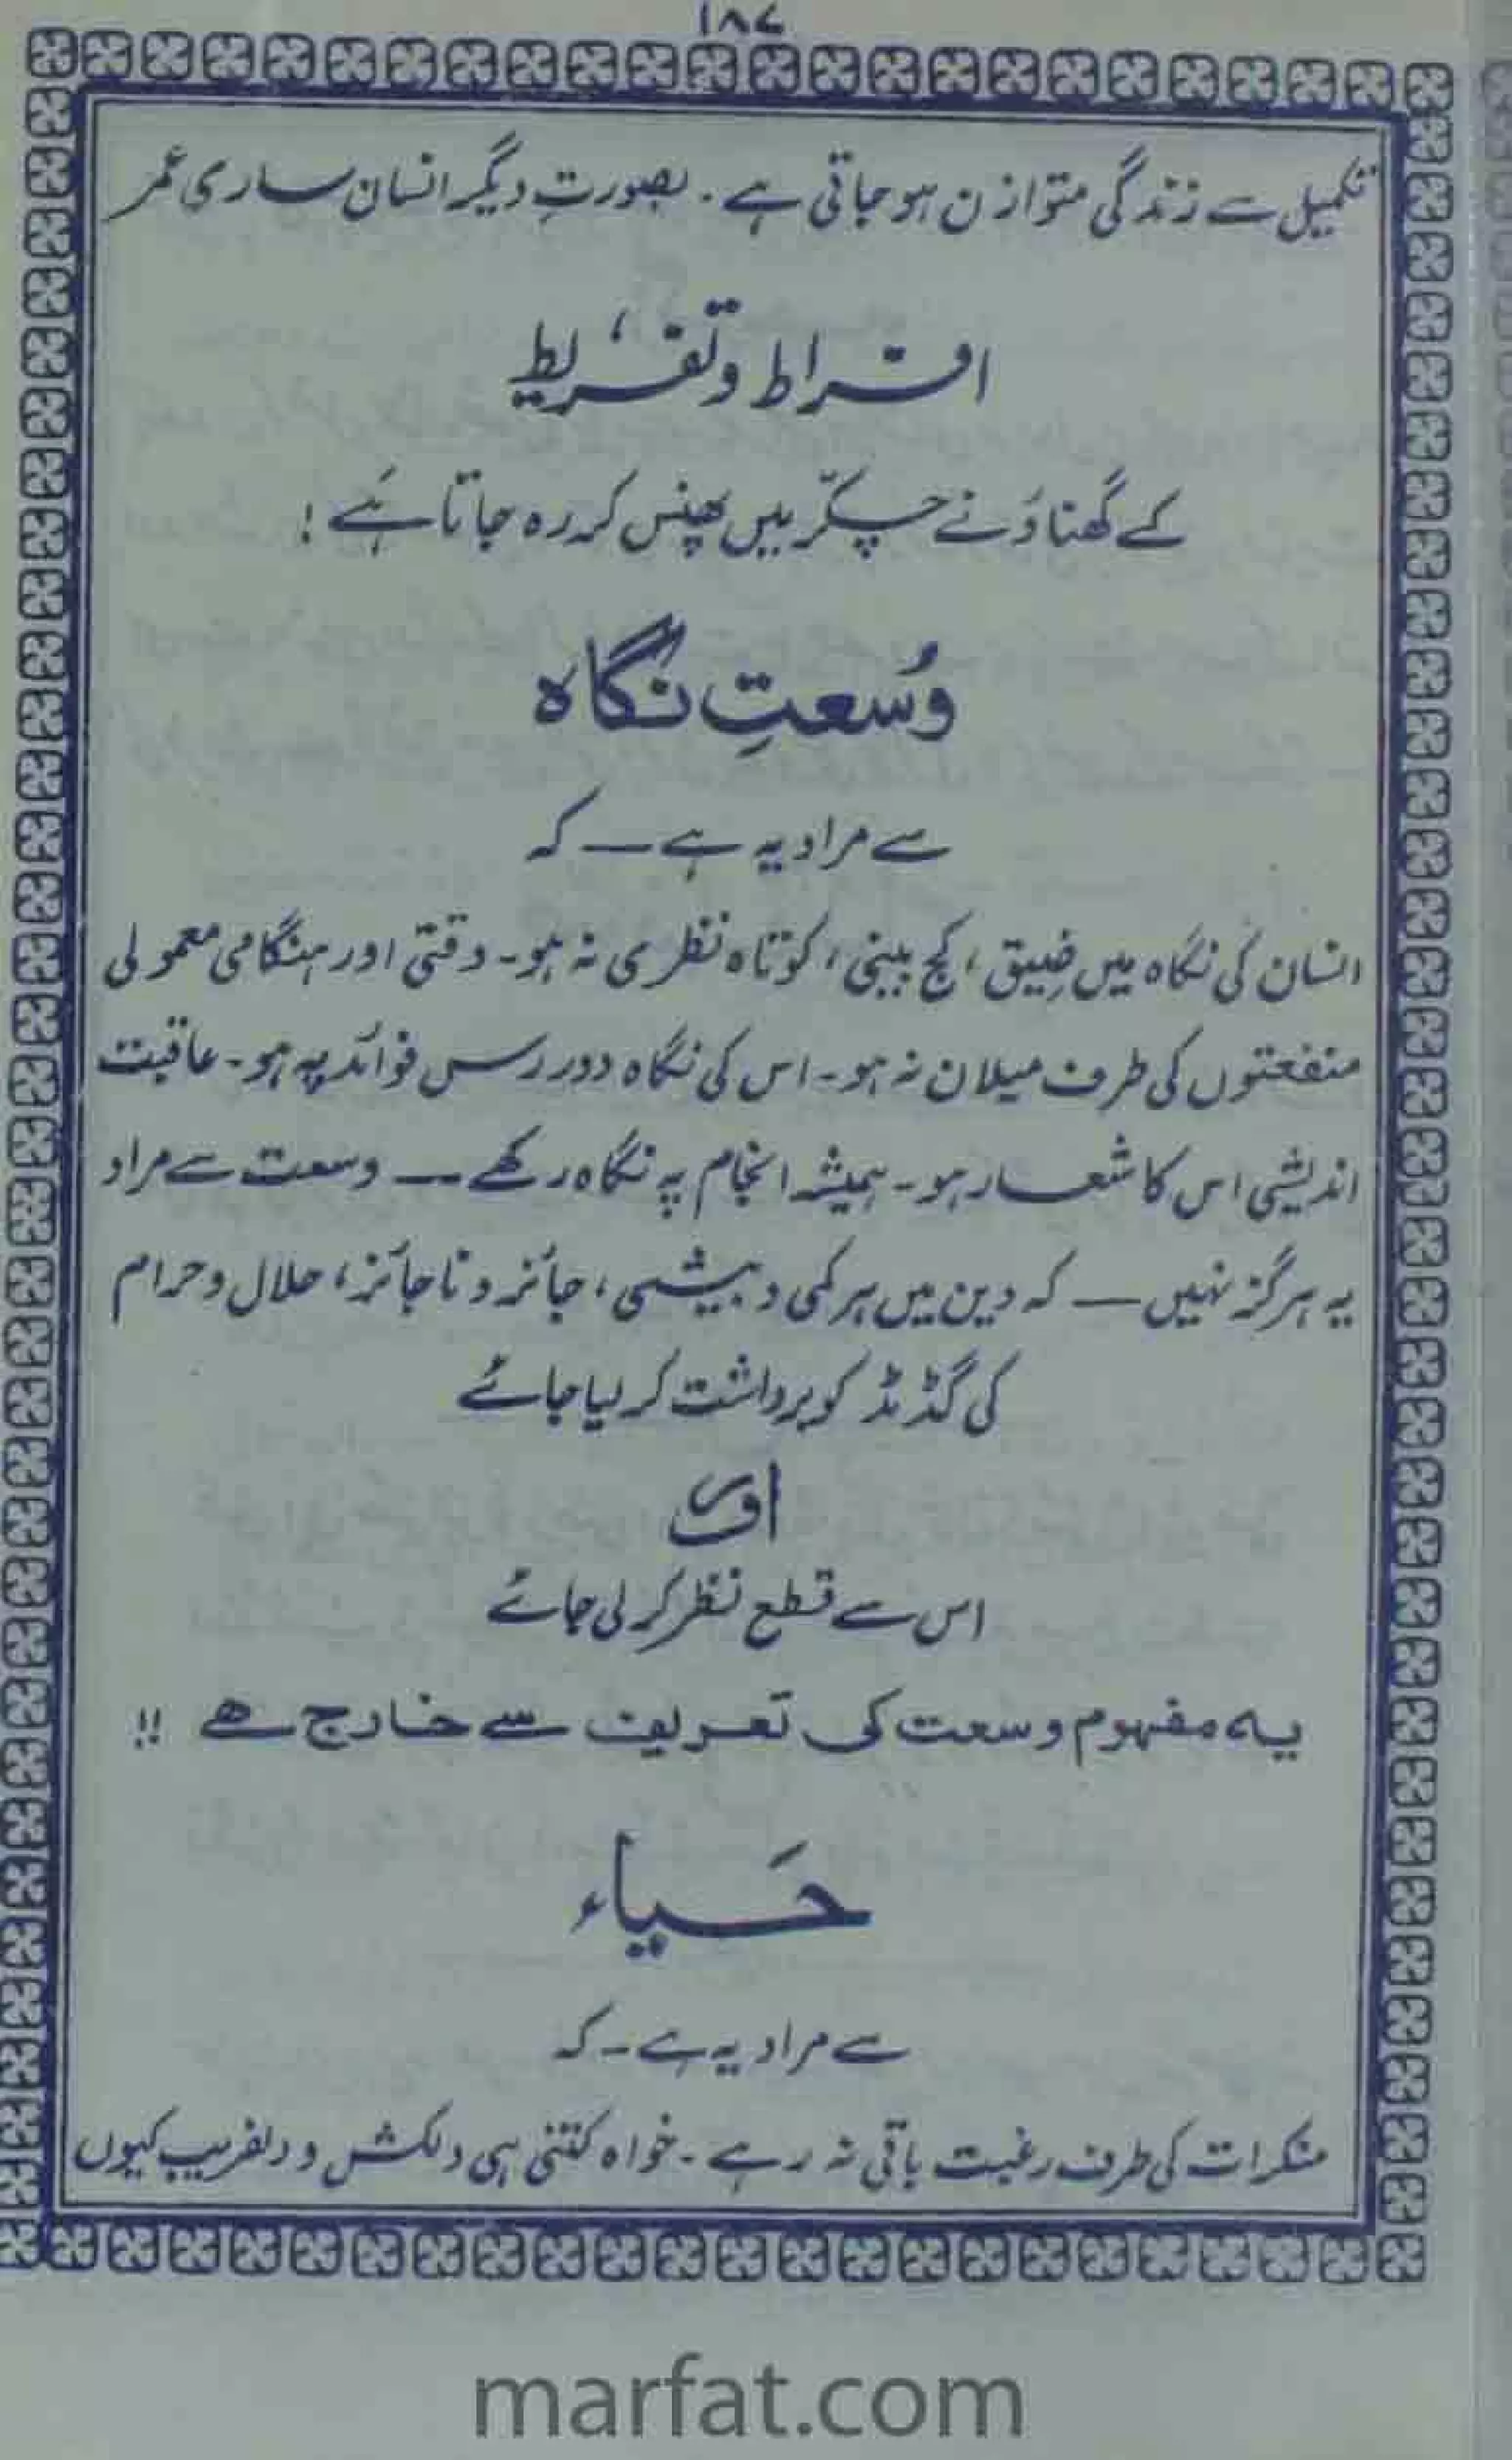 ۱۸۷
تکمیل سے زندگی متوازن ہو جاتی ہے۔ بصورتِ دیگر انسان ساری عمر
افراط و تفریط
کے گھناؤنے چکّر میں پھنس کر رہ جاتا ہَے !
وُسعتِ نگاہ
سے مراد یہ ہے — کہ
انسان کی نگاہ میں ضِیق، کج بینی، کوتاہ نظری نہ ہو۔ وقتی اور ہنگامی معمولی
منفعتوں کی طرف میلان نہ ہو۔ اس کی نگاہ دور رس فوائد پہ ہو۔ عاقبت
اندیشی اس کا شعار ہو۔ ہمیشہ انجام پہ نگاہ رکھے — وسعت سے مراد
یہ ہرگز نہیں — کہ دین میں ہر کمی و بیشی، جائز و ناجائز، حلال و حرام
کی گڈ مڈ کو برداشت کر لیا جائے
اور
اس سے قطع نظر کر لی جائے
یہ مفہوم وسعت کی تعریف سے خارج ہے !!
حَیاء
سے مراد یہ ہے - کہ
منکرات کی طرف رغبت باقی نہ رہے۔ خواہ کتنی ہی دلکش و دلفریب کیوں
marfat.com